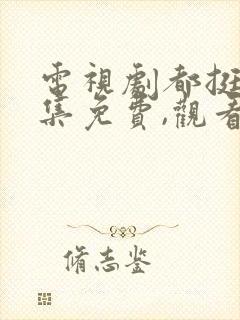 電視劇都挺
集免費,觀看
脩志鉴